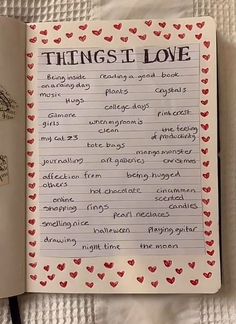 THINGS I LOVE
Being inside reading a good book
on a rainy day
music plants crystals
Hugs college days
Gilmore pink crest
girls when my room is
clean the feeling
my cat <3 of productivity
tote bags
mango monster
journalling art galleries christmas
affection from being hugged
others
hot chocolate cinnamon
online scented
shopping rings candles
pearl necklaces
smelling nice
halloween playing guitar
drawing
night time the moon